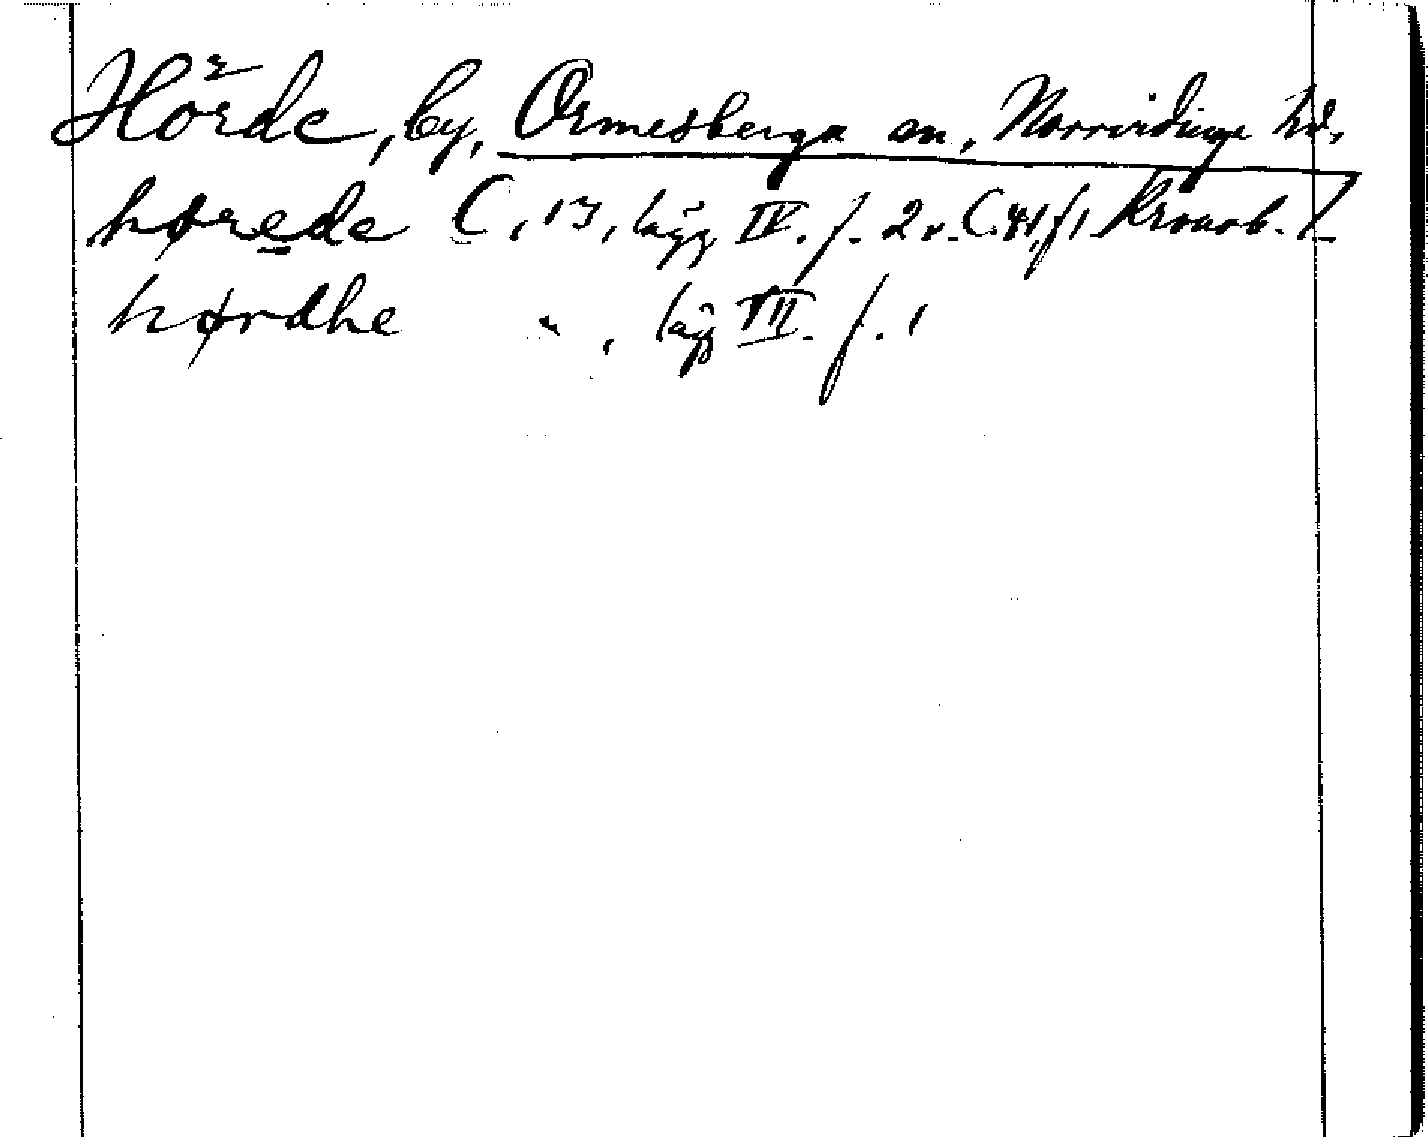 Hörde, by, Ormesberga sn, Norrvidinge hd,
hørede C, 13, lägg IV. f. 2 v. C.41, f1 Kronob. L
hørdhe ", lägg VII. f. 1